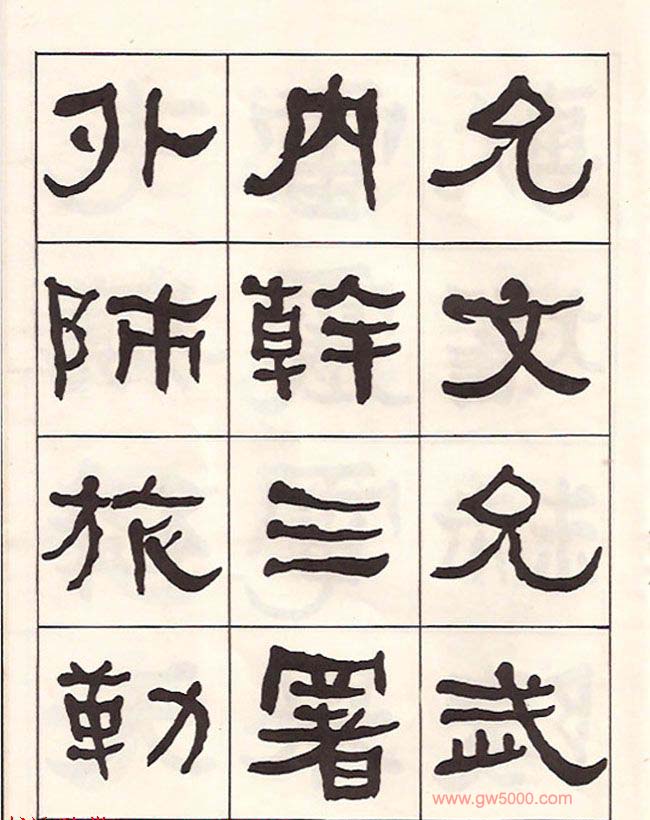 允文允武
内幹三署
外師旅勒
www.gw5000.com